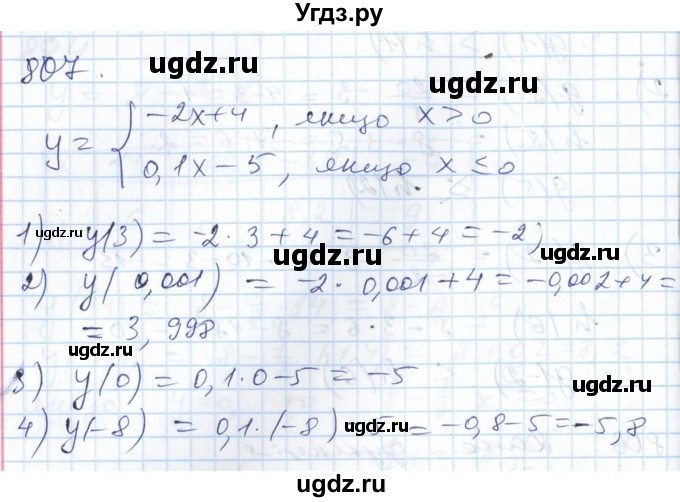 Угдз.ру
807.
y = { -2x+4, якщо x > 0
0,1x - 5, якщо x ≤ 0
1) y(3) = -2·3+4 = -6+4 = -2;
2) y(0,001) = -2·0,001+4 = -0,002+4 =
= 3,998
3) y(0) = 0,1·0-5 = -5
4) y(-8) = 0,1·(-8)-5 = -0,8-5 = -5,8
ugdz.ru
ugdz.ru
ugdz.ru
ugdz.ru
ugdz.ru
ugdz.ru
ugdz.ru
ugdz.ru
ugdz.ru
ugdz.ru
ugdz.ru
ugdz.ru